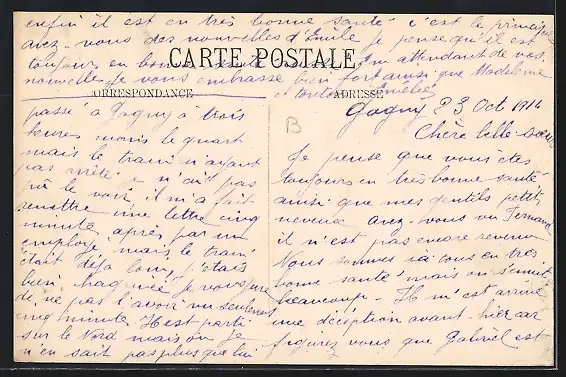 enfin il est en très bonne santé c'est le principal
avez-vous des nouvelles d'Emile je pense qu'il est
toujours en bonne santé attendant de vos
nouvelles Je vous embrasse bien fort ainsi que Madeleine
et tonton Amélie
CARTE POSTALE
CORRESPONDANCE
ADRESSE
Gagny 23 Oct 1914
Chère belle-sœur
Je pense que vous êtes
toujours en très bonne santé
ainsi que mes gentils petits
neveux avez-vous vu Fernand
il n'est pas encore revenu
Nous sommes ici tous en très
bonne santé mais on s'ennuie
beaucoup. Il m'est arrivé
une déception avant-hier car
figurez vous que Gabriel est
passé à Gagny à trois
heures moins le quart
mais le train n'ayant
pas arrêté je n'ai pas
pû le voir, il m'a fait
remettre une lettre cinq
minutes après par un
employé mais le train
était déjà loin, j'étais
bien chagrinée je vous jure
de ne pas l'avoir vu seulement
cinq minutes Il est parti
sur le Nord mais où Je
n'en sait pas plus que lui
B